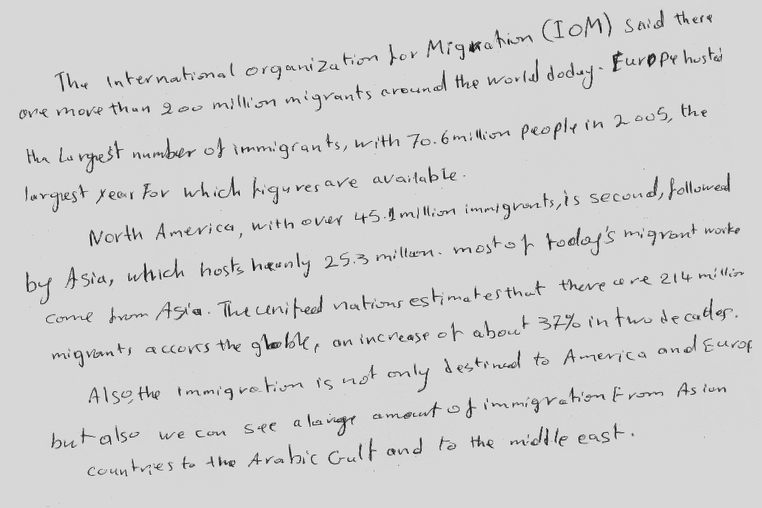 The International organization for Migration (IOM) said there
are more than 200 million migrants around the world doday. Europe hosted
the Largest number of immigrants, with 70.6 million people in 2005, the
largest year For which figures are available.
North America, with over 45.1 million immigrants, is second, followed
by Asia, which hosts nearly 25.3 million. most of today's migrant worke
come from Asia. The united nations estimates that there are 214 million
migrants accorss the globle, an increase of about 37% in two decades.
Also, the immigration is not only destined to America and Europ
but also we can see a large amount of immigration From Asian
countries to the Arabic Gulf and to the middle east.